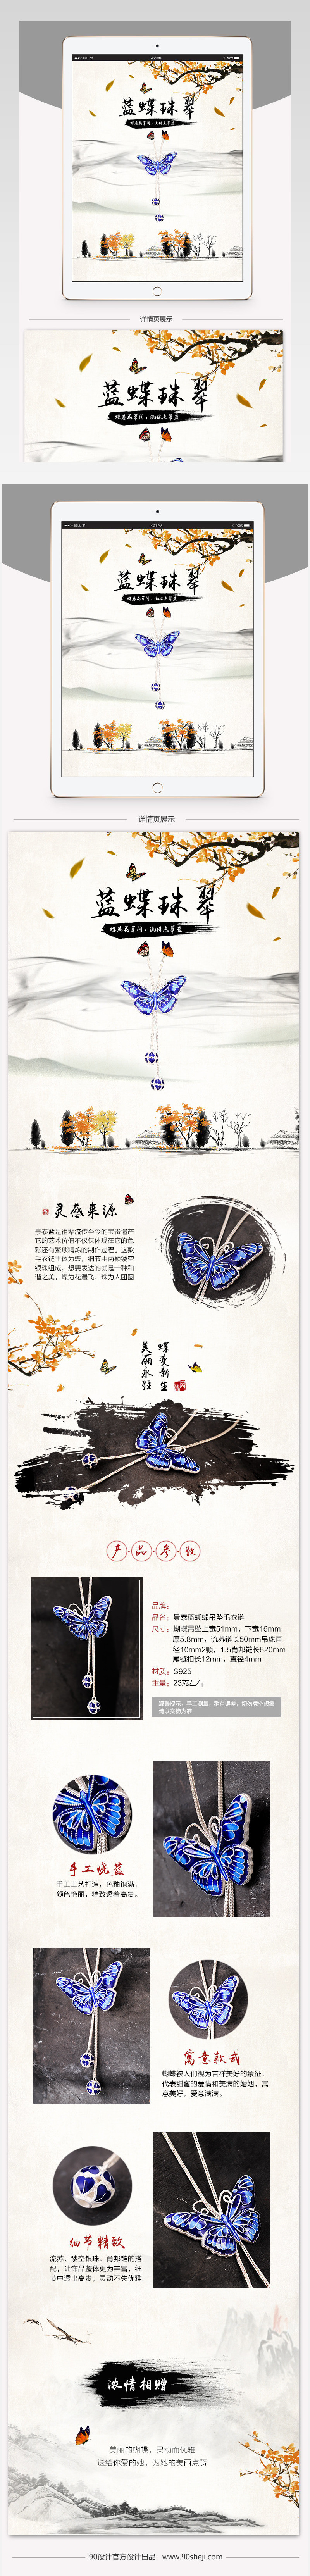 蓝蝶珠翠
蝶恋花草间，流珠点翠蓝
详情页展示
蓝蝶珠翠
蝶恋花草间，流珠点翠蓝
4:21 PM
蓝蝶珠翠
蝶恋花草间，流珠点翠蓝
详情页展示
蓝蝶珠翠
蝶恋花草间，流珠点翠蓝
灵感来源
景泰蓝是祖辈流传至今的宝贵遗产
它的艺术价值不仅仅体现在它的色
彩还有繁琐精练的制作过程。这款
毛衣链主体为蝶，细节由两颗镂空
银珠组成，想要表达的就是一种和
谐之美，蝶为花漫飞，珠为人团圆
蝶变新生
美丽永驻
产·品·参·数
品牌：
品名：景泰蓝蝴蝶吊坠毛衣链
尺寸：蝴蝶吊坠上宽51mm，下宽16mm
厚5.8mm，流苏链长50mm吊珠直
径10mm2颗，1.5肖邦链长620mm
尾链扣长12mm，直径4mm
材质：S925
重量：23克左右
温馨提示：手工测量，稍有误差，切勿凭空想象
请以实物为准
手工烧蓝
手工工艺打造，色釉饱满，
颜色艳丽，精致透着高贵。
寓意款式
蝴蝶被人们视为吉祥美好的象征，
代表甜蜜的爱情和美满的婚姻，寓
意美好，爱意满满。
细节精致
流苏、镂空银珠、肖邦链的搭
配，让饰品整体更为丰富，细
节中透出高贵，灵动不失优雅
浓情相赠
美丽的蝴蝶，灵动而优雅
送给你爱的她，为她的美丽点赞
90设计官方设计出品 www.90sheji.com